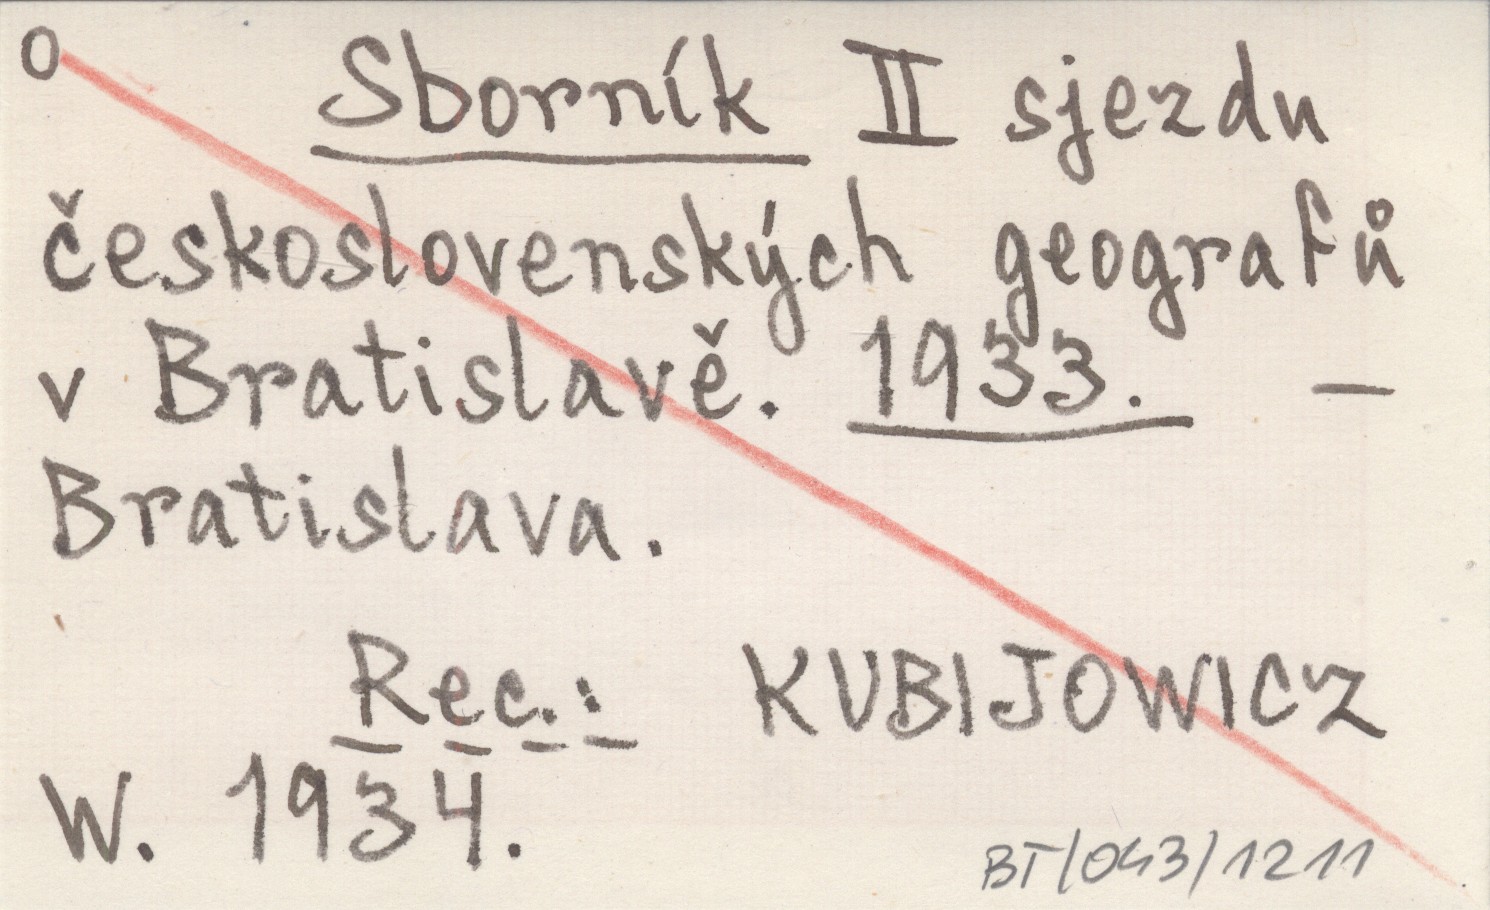 O Sborník II sjezdu
československých geografů
v Bratislavě. 1933. —
Bratislava.
Rec.: KUBIJOWICZ
W. 1934.
BT/043/1211